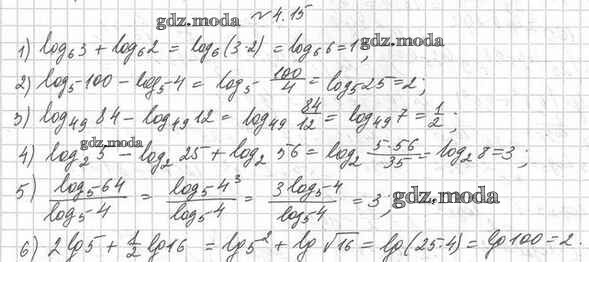 № 4.15
gdz.moda
1) log₆3 + log₆2 = log₆(3·2) = log₆6 = 1;
gdz.moda
2) log₅100 − log₅4 = log₅ 100/4 = log₅25 = 2;
3) log₄₉ 84 − log₄₉ 12 = log₄₉ 84/12 = log₄₉ 7 = 1/2;
gdz.moda
4) log₂ 5 − log₂ 25 + log₂ 56 = log₂ 5·56/35 = log₂ 8 = 3;
5) log₅64/log₅4 = log₅4³/log₅4 = 3log₅4/log₅4 = 3;
gdz.moda
6) 2lg5 + 1/2 lg16 = lg5² + lg √16 = lg(25·4) = lg100 = 2.